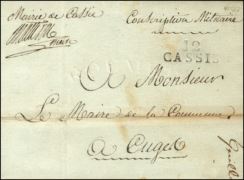 Mairie de Cassis
Conscription Militaire
Maire
12
CASSIS
A Monsieur
Le Maire de la Commune
a Cuges